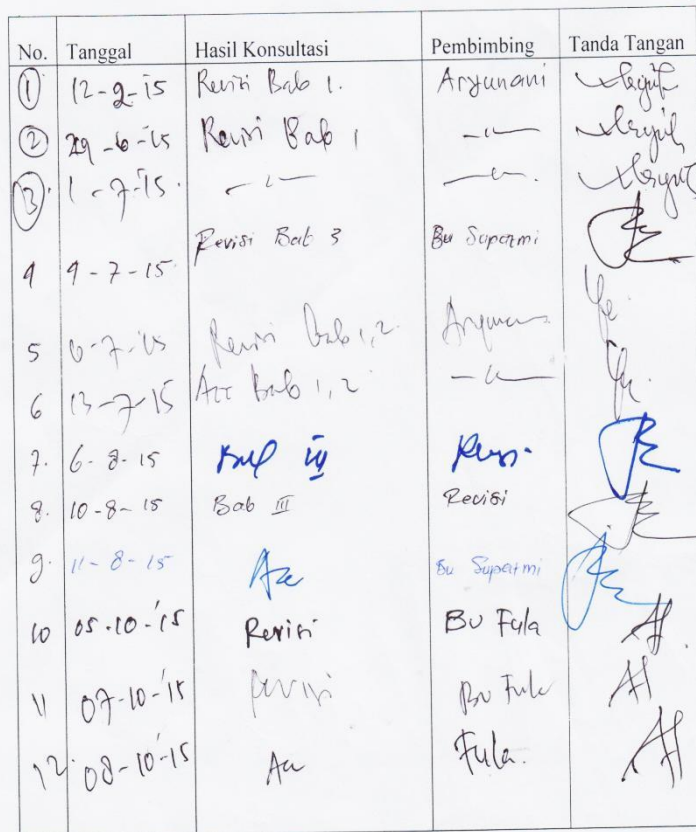 No. Tanggal Hasil Konsultasi Pembimbing Tanda Tangan
1 12-2-'15 Revisi Bab 1. Aryunani
2 29-6-'15 Revisi Bab 1 -〃-
3. 1-7-'15. -〃- -〃-.
4 9-7-15. Revisi Bab 3 Bu Suparmi
5 6-7-'15 Revisi Bab 1,2
6 13-7-15 Acc Bab 1,2 -〃-
7. 6-8-15 Bab III Revisi
8. 10-8-15 Bab III Revisi
9. 11-8-15 Acc Bu Suparmi
10 05-10-'15 Revisi Bu Fula
11 07-10-'15 Revisi Bu Fula
12. 08-10-'15 Acc Fula.